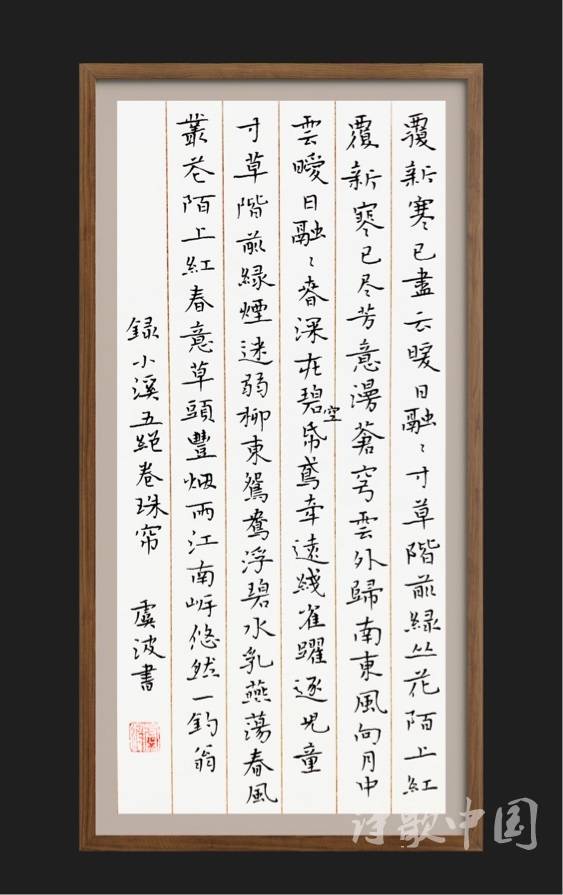 覆新寒已盡云暖日融〻寸草階前緑丛花陌上紅
覆新寒已尽芳意漫蒼穹雲外歸南東風向月中
雲曖日融〻春深在碧空帋鳶牵遠綫雀躍逐児童
寸草階前緑煙迷弱柳東鴛鴦浮碧水乳燕蕩春風
叢花陌上紅春意草頭豐烟雨江南岸悠然一釣翁
録小溪五絕卷珠帘 虞波書
诗歌中国